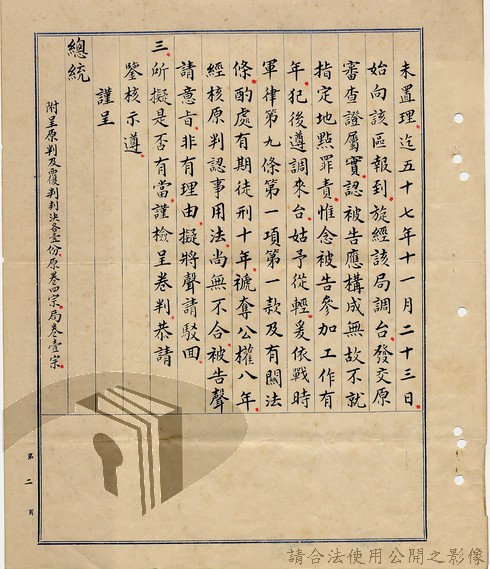 未置理。迄五十七年十一月二十三日。
始向該區報到。旋經該局調台。發交原
審查證屬實。認被告應構成無故不就
指定地點罪責。惟念被告參加工作有
年。犯後遵調來台。姑予從輕。爰依戰時
軍律第九條第一項第一款及有關法
條。酌處有期徒刑十年。褫奪公權八年。
經核原判認事用法。尚無不合。被告聲
請意旨。非有理由。擬將聲請駁回。
三、所擬是否有當。謹檢呈卷判。恭請
鑒核示遵。
謹呈
總統
附呈原判及覆判判決各壹份。原卷四宗。局卷壹宗。
第二頁
請合法使用公開之影像